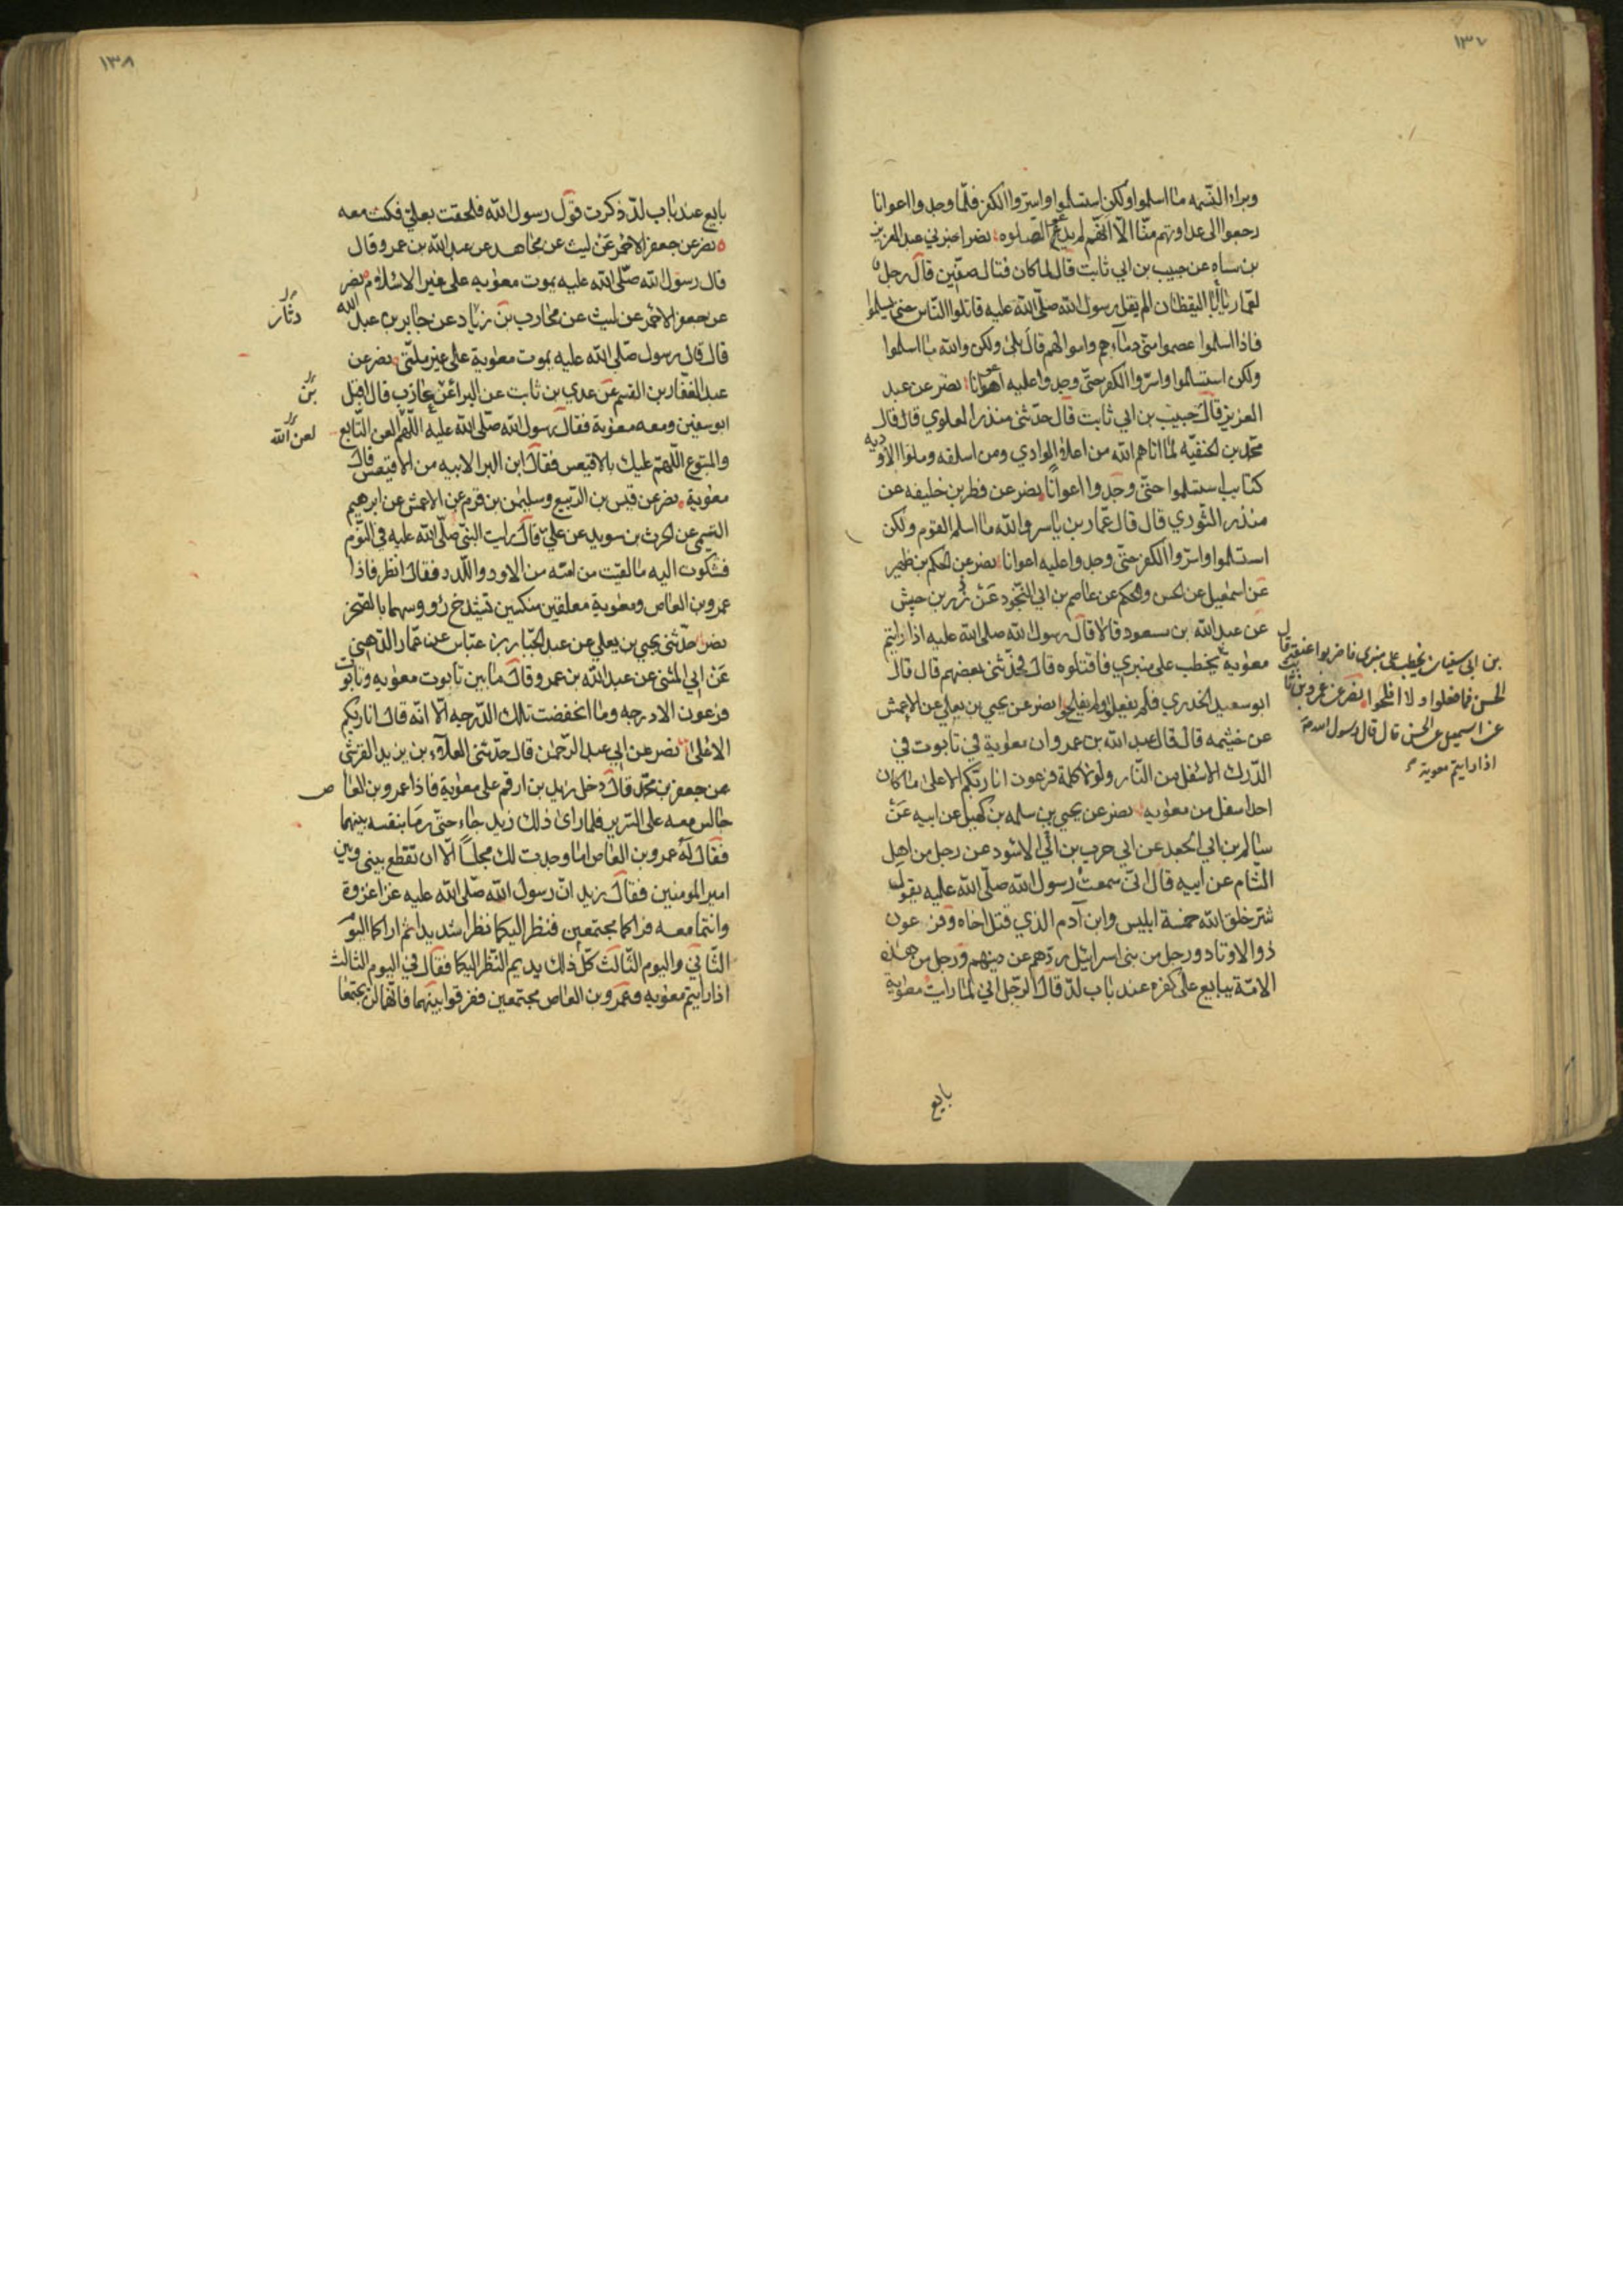 ١٣٧
وبراء النسمه ما اسلموا ولكن استسلموا واسرّوا الكفر فلمّا وجدوا اعوانا
رجعوا الى عداوتهم منّا الّا انّهم لم يدعوا الصّلوه نصر اخبرني عبد العزيز
بن سياه عن حبيب بن ابي ثابت قال لما كان قتال صفّين قال رجل
لعمّار يا ابا اليقظان الم يقل رسول الله صلّى الله عليه قاتلوا النّاس حتى يسلموا
فاذا اسلموا عصموا منّي دماءهم واموالهم قال بلى ولكن والله ما اسلموا
ولكن استسلموا واسرّوا الكفر حتّى وجدوا عليه اعوانا نصر عن عبد
العزيز قال حبيب بن ابي ثابت قال حدّثنى منذر العلوي قال قال
محمّد بن الحنفيّه لمّا اتاهم الله من اعلا الوادي ومن اسفله وملؤا الاوديه
كتايب استسلموا حتّى وجدوا اعوانا نصر عن فطر بن خليفه عن
منذر الثّوري قال قال عمّار بن ياسر والله ما اسلم القوم ولكن
استسلموا واسرّوا الكفر حتّى وجدوا عليه اعوانا نصر عن الحكم بن ظهير
عن اسمعيل عن الحسن والحكم عن عاصم بن ابي النّجود عن زرّ بن حبيش
عن عبد الله بن مسعود قالا قال رسول الله صلى الله عليه اذا رايتم
معوية يخطب على منبري فاقتلوه قال فحدّثنى بعضهم قال قال
ابو سعيد الخدري فلم يفعلوا ولم يفلحوا نصر عن يحيي بن يعلي عن الاعمش
عن خيثمه قال قال عبد الله بن عمرو ان معوية في تابوت في
الدّرك الاسفل من النّار ولولا كلمة فرعون انا ربّكم الاعلى ما كان
احد اسفل من معويه نصر عن يحيي بن سلمه بن كهيل عن ابيه عن
سالم بن ابي الجعد عن ابي حرب بن ابي الاسود عن رجل من اهل
الشام عن ابيه قال انّى سمعت رسول الله صلّى الله عليه يقول
شرّ خلق الله خمسة ابليس وابن آدم الذي قتل اخاه وفرعون
ذو الاوتاد ورجل من بنى اسرائيل ردّهم عن دينهم ورجل من هذه
الامّة يبايع على كفره عند باب لدّ قال الرّجل انّي لمّا رايت معوية
بايع
بن ابي سفيان يخطب على منبرى فاضربوا عنقه قال
الحسن فما فعلوا ولا افلحوا نصر عن عمرو بن ثابت
عن اسمعيل عن الحسن قال قال رسول الله ص
اذا رايتم معوية
١٣٨
بايع عند باب لدّ ذكرت قول رسول الله فلحقت بعليّ فكنت معه
نصر عن جعفر الاحمر عن ليث عن مجاهد عن عبد الله بن عمر وقال
قال رسول الله صلّى الله عليه يموت معويه على غير الاسلام نصر
عن جعفر الاحمر عن ليث عن محارب بن زياد عن جابر بن عبد الله
دثار
قال قال رسول صلّى الله عليه يموت معوية على غير ملّتي نصر عن
عبد الغفّار بن القسم عن عدي بن ثابت عن البرا عن عازب قال اقبل
بن
ابو سفين ومعه معوية فقال رسول الله صلّى الله عليه اللّهمّ العن التّابع
لعن الله
والمتبوع اللّهمّ عليك بالاقيعس فقال ابن البرا لابيه من الاقيعس قال
معوية نصر عن قيس بن الرّبيع وسليمن بن قرم عن الاعمش عن ابرهيم
التيمى عن الحرث بن سويد عن علىّ قال رايت النبيّ صلّى الله عليه في النّوم
فشكوت اليه ما لقيت من امّته من الاود واللّدد فقال انظر فاذا
عمرو بن العاص ومعوية معلقين منكسين تشدخ رؤوسهما بالصّخر
نصر حدّثنى يحيي بن يعلي عن عبد الجبّار بن عبّاس عن عمّار الدّهنى
عن ابي المثنى عن عبد الله بن عمر وقال ما بين تابوت معويه وتابوت
فرعون الا درجه وما انخفضت تلك الدّرجه الّا انّه قال انا ربّكم
الاعلى نصر عن ابي عبد الرّحمن قال حدّثنى العلاء بن يزيد القرشي
عن جعفر بن محمّد قال دخل زيد بن ارقم على معوية فاذا عمرو بن العاص
جالس معه على السّرير فلما راى ذلك زيد جاء حتّى رما بنفسه بينهما
فقال له عمرو بن العاص اما وجدت لك مجلسًا الّا ان تقطع بيني وبين
امير المومنين فقال زيد انّ رسول الله صلّى الله عليه غزا غزوة
وانتما معه فراكما مجتمعين فنظر اليكما نظرا شديدا ثم اراكما اليوم
الثّاني واليوم الثّالث كلّ ذلك يديم النّظر اليكما فقال في اليوم الثالث
اذا رايتم معويه وعمرو بن العاص مجتمعين ففرّقوا بينهما فانّهما لن يجتمعا